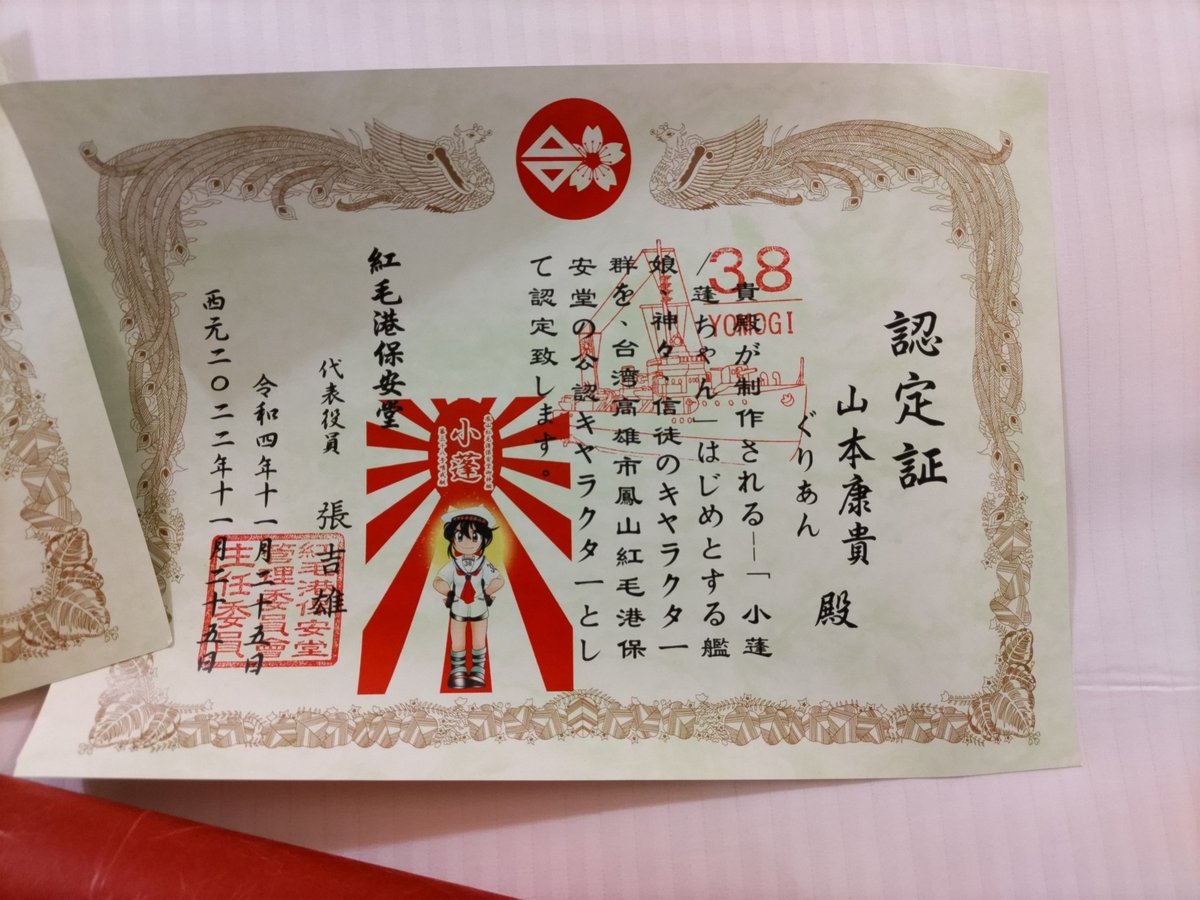 認定証
ぐりあん
山本康貴 殿
38
YOMOGI
貴殿が制作される―「小蓬
/蓬ちゃん」はじめとする艦
娘、神々、信徒のキャラクター
群を、台湾高雄市鳳山紅毛港保
安堂の公認キャラクターとし
て認定致します。
小蓬
紅毛港保安堂
代表役員 張吉雄
令和四年十一月二十五日
西元二〇二二年十一月二十五日
紅毛港保安堂
管理委員會
主任委員